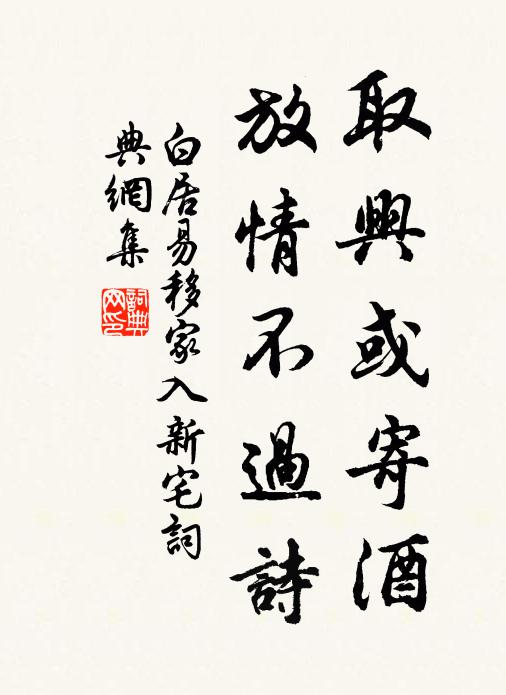 取興或寄酒
放情不過詩
白居易移家入新宅詞
典網集
詞典
网印